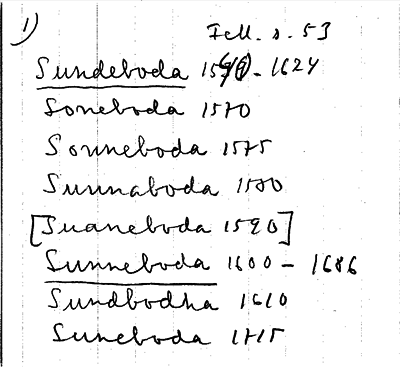 1)
Fell. s. 53
Sundeboda - 1624
Soneboda 1570
Sonneboda 1575
Sunnaboda 1580
[Suaneboda 1590]
Sunneboda 1600 - 1686
Sundbodha 1610
Suneboda 1715